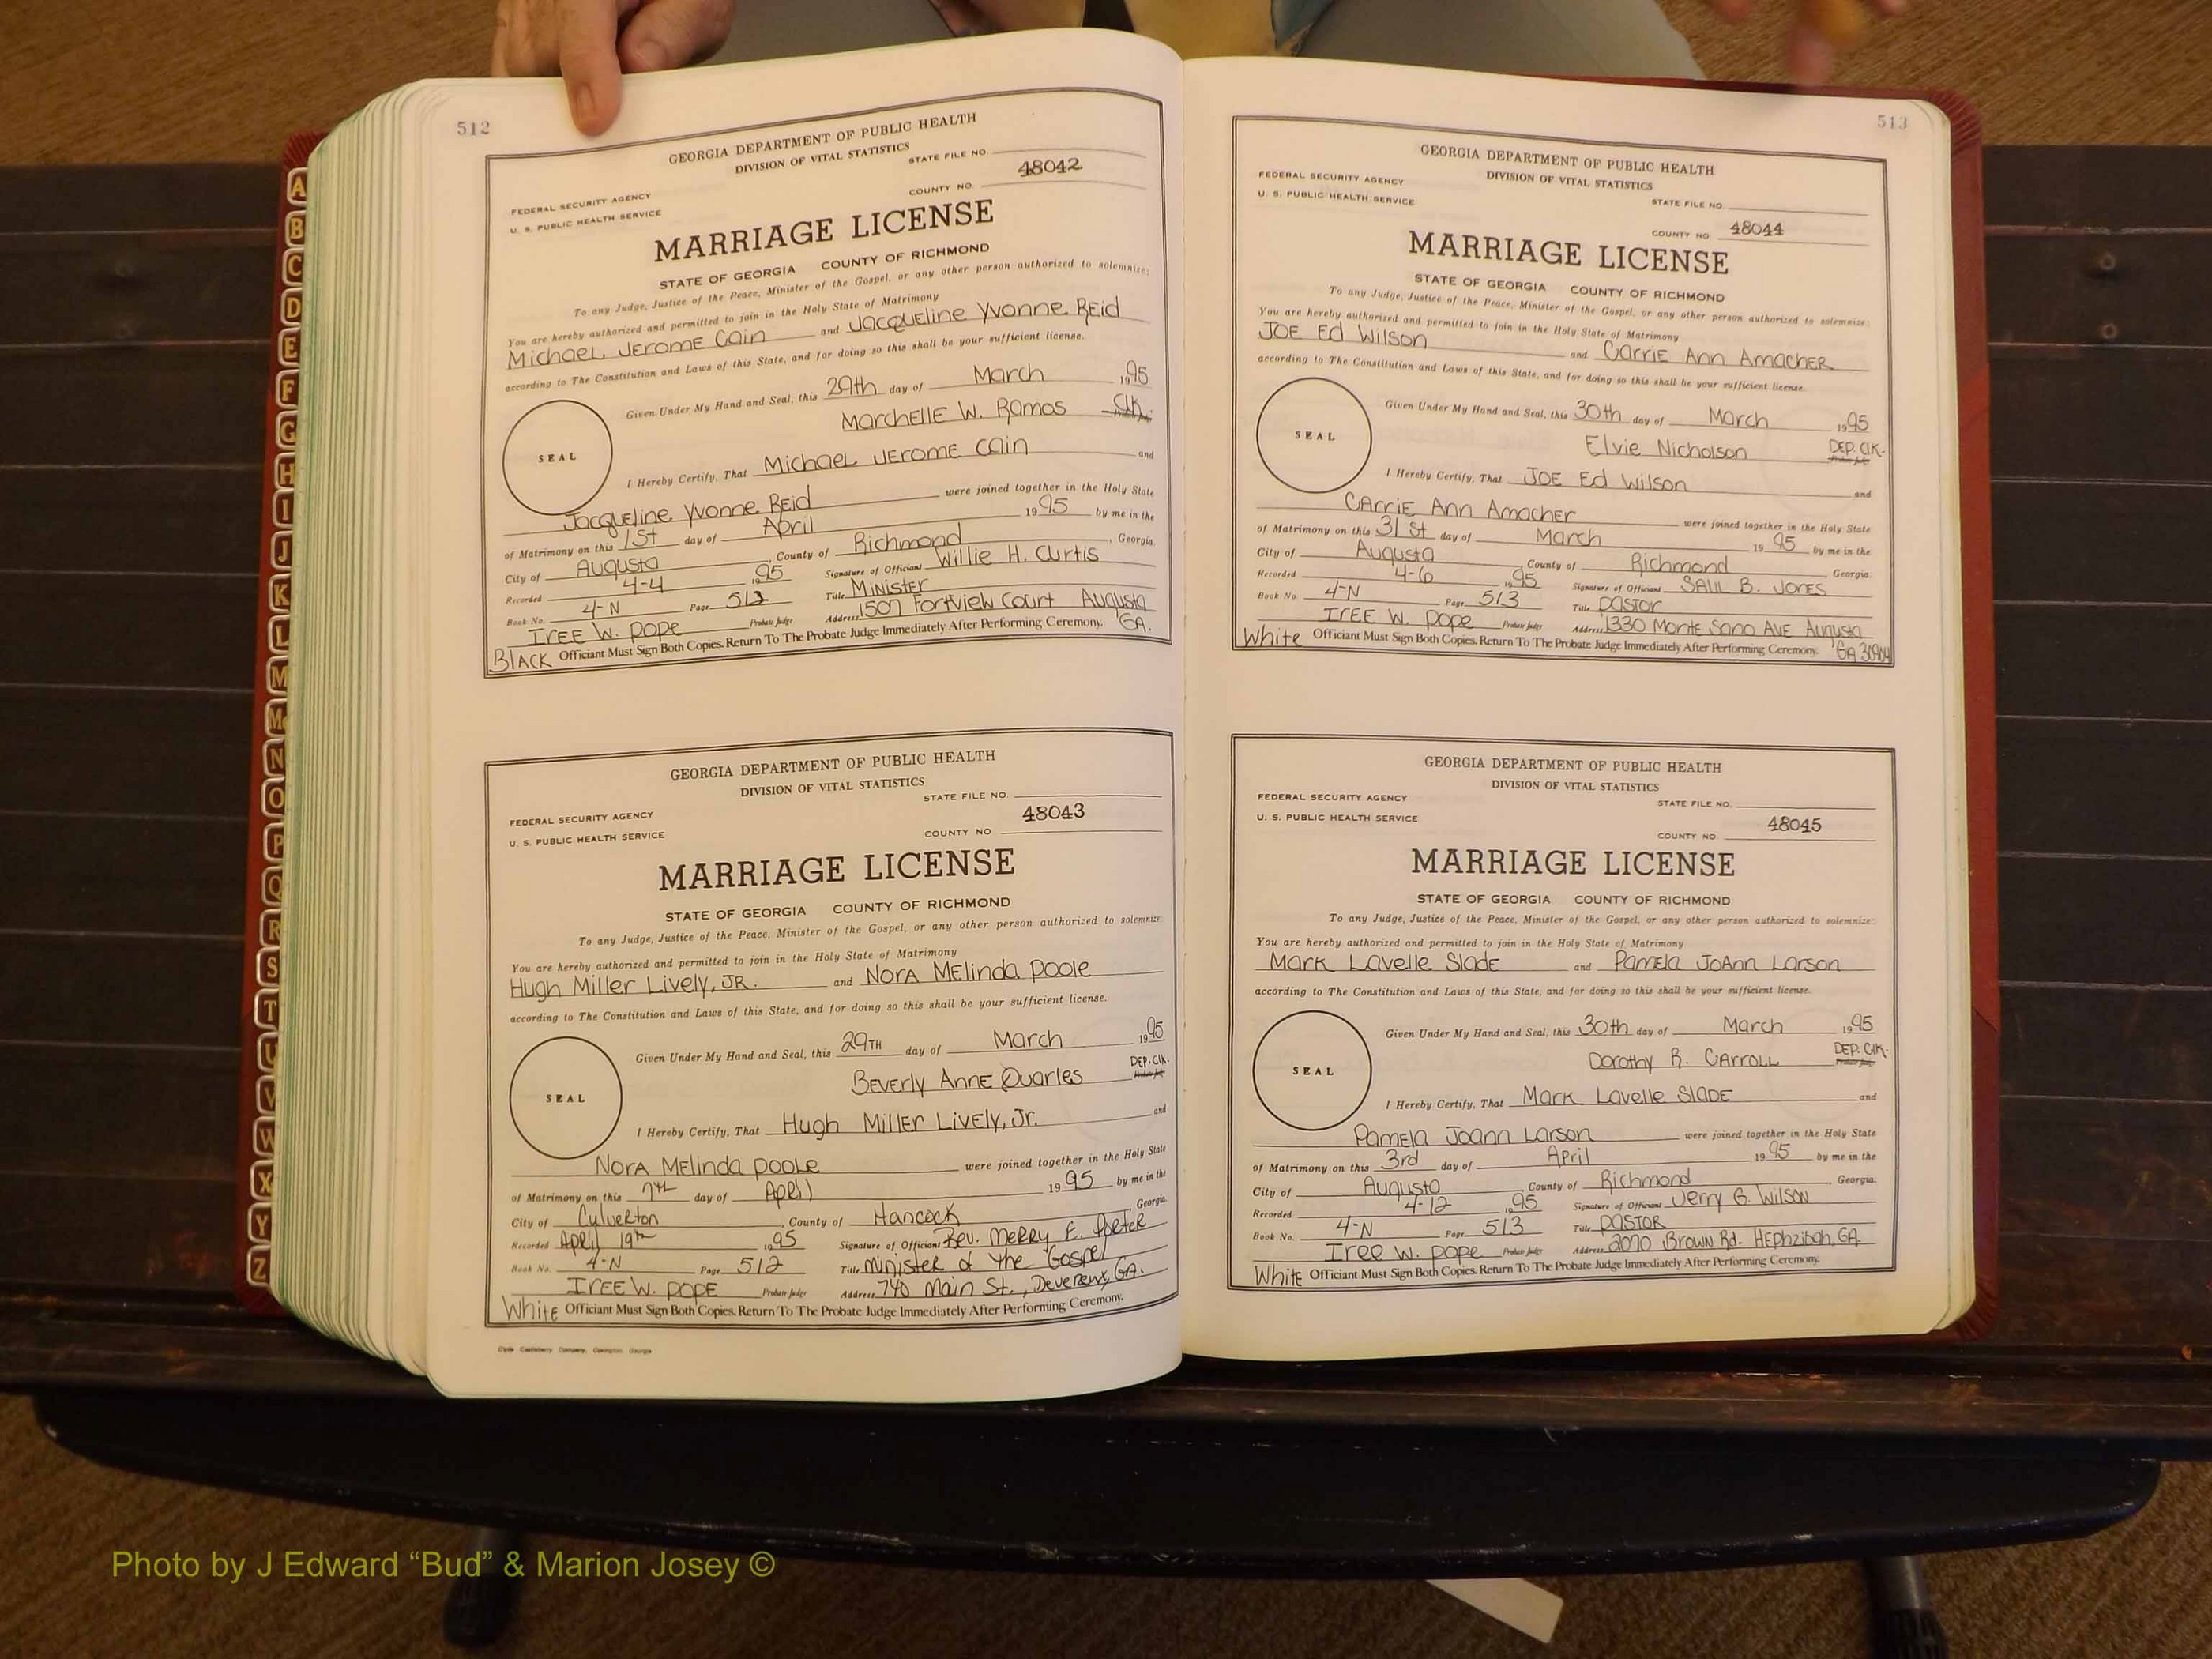 512
GEORGIA DEPARTMENT OF PUBLIC HEALTH
DIVISION OF VITAL STATISTICS
STATE FILE NO.
48042
FEDERAL SECURITY AGENCY
COUNTY NO
U. S. PUBLIC HEALTH SERVICE
MARRIAGE LICENSE
STATE OF GEORGIA COUNTY OF RICHMOND
To any Judge, Justice of the Peace, Minister of the Gospel, or any other person authorized to solemnize:
You are hereby authorized and permitted to join in the Holy State of Matrimony
Michael Jerome Cain and Jacqueline Yvonne Reid
according to The Constitution and Laws of this State, and for doing so this shall be your sufficient license.
Given Under My Hand and Seal, this 29th day of March 1995
Marchelle W. Ramos Clk.
SEAL
I Hereby Certify, That Michael Jerome Cain and
Jacqueline Yvonne Reid were joined together in the Holy State
of Matrimony on this 1st day of April 1995 by me in the
City of Augusta, County of Richmond, Georgia.
Recorded 4-4 1995 Signature of Officiant Willie H. Curtis
Book No. 4-N Page 512 Title Minister
Iree W. Pope Probate Judge Address 1507 Fortview Court Augusta GA.
Black Officiant Must Sign Both Copies. Return To The Probate Judge Immediately After Performing Ceremony.
GEORGIA DEPARTMENT OF PUBLIC HEALTH
DIVISION OF VITAL STATISTICS
STATE FILE NO.
FEDERAL SECURITY AGENCY
48043
U. S. PUBLIC HEALTH SERVICE
COUNTY NO
MARRIAGE LICENSE
STATE OF GEORGIA COUNTY OF RICHMOND
To any Judge, Justice of the Peace, Minister of the Gospel, or any other person authorized to solemnize:
You are hereby authorized and permitted to join in the Holy State of Matrimony
Hugh Miller Lively, Jr. and Nora Melinda Poole
according to The Constitution and Laws of this State, and for doing so this shall be your sufficient license.
Given Under My Hand and Seal, this 29th day of March 1995
Beverly Anne Quarles Dep. Clk.
SEAL
I Hereby Certify, That Hugh Miller Lively, Jr. and
Nora Melinda Poole were joined together in the Holy State
of Matrimony on this 7th day of April 1995 by me in the
City of Culverton, County of Hancock Georgia.
Recorded April 19th 1995 Signature of Officiant Rev. Merry E. Porter
Book No. 4-N Page 512 Title Minister of the Gospel
Iree W. Pope Probate Judge Address 740 Main St., Devereux, GA.
White Officiant Must Sign Both Copies. Return To The Probate Judge Immediately After Performing Ceremony.
Clyde Castleberry Company, Covington, Georgia
513
GEORGIA DEPARTMENT OF PUBLIC HEALTH
DIVISION OF VITAL STATISTICS
FEDERAL SECURITY AGENCY
STATE FILE NO.
U. S. PUBLIC HEALTH SERVICE
COUNTY NO 48044
MARRIAGE LICENSE
STATE OF GEORGIA COUNTY OF RICHMOND
To any Judge, Justice of the Peace, Minister of the Gospel, or any other person authorized to solemnize:
You are hereby authorized and permitted to join in the Holy State of Matrimony
Joe Ed Wilson and Carrie Ann Amacher
according to The Constitution and Laws of this State, and for doing so this shall be your sufficient license.
Given Under My Hand and Seal, this 30th day of March 1995
Elvie Nicholson Dep. Clk.
SEAL
I Hereby Certify, That Joe Ed Wilson and
Carrie Ann Amacher were joined together in the Holy State
of Matrimony on this 31st day of March 1995 by me in the
City of Augusta, County of Richmond, Georgia.
Recorded 4-6 1995 Signature of Officiant Saul B. Jones
Book No. 4-N Page 513 Title Pastor
Iree W. Pope Probate Judge Address 1330 Monte Sano Ave Augusta GA 30904
White Officiant Must Sign Both Copies. Return To The Probate Judge Immediately After Performing Ceremony.
GEORGIA DEPARTMENT OF PUBLIC HEALTH
DIVISION OF VITAL STATISTICS
FEDERAL SECURITY AGENCY
STATE FILE NO.
U. S. PUBLIC HEALTH SERVICE
48045
COUNTY NO.
MARRIAGE LICENSE
STATE OF GEORGIA COUNTY OF RICHMOND
To any Judge, Justice of the Peace, Minister of the Gospel, or any other person authorized to solemnize:
You are hereby authorized and permitted to join in the Holy State of Matrimony
Mark Lavelle Slade and Pamela JoAnn Larson
according to The Constitution and Laws of this State, and for doing so this shall be your sufficient license.
Given Under My Hand and Seal, this 30th day of March 1995
Dorothy R. Carroll Dep. Clk.
SEAL
I Hereby Certify, That Mark Lavelle Slade and
Pamela Joann Larson were joined together in the Holy State
of Matrimony on this 3rd day of April 1995 by me in the
City of Augusta, County of Richmond, Georgia.
Recorded 4-12 1995 Signature of Officiant Jerry G. Wilson
Book No. 4-N Page 513 Title Pastor
Iree W. Pope Probate Judge Address 2070 Brown Rd. Hephzibah, GA.
White Officiant Must Sign Both Copies. Return To The Probate Judge Immediately After Performing Ceremony.
A
B
C
D
E
F
G
H
I
J
K
L
M
Mc
N
O
P
Q
R
S
T
U
V
W
X
Y
Z
Photo by J Edward “Bud” & Marion Josey ©